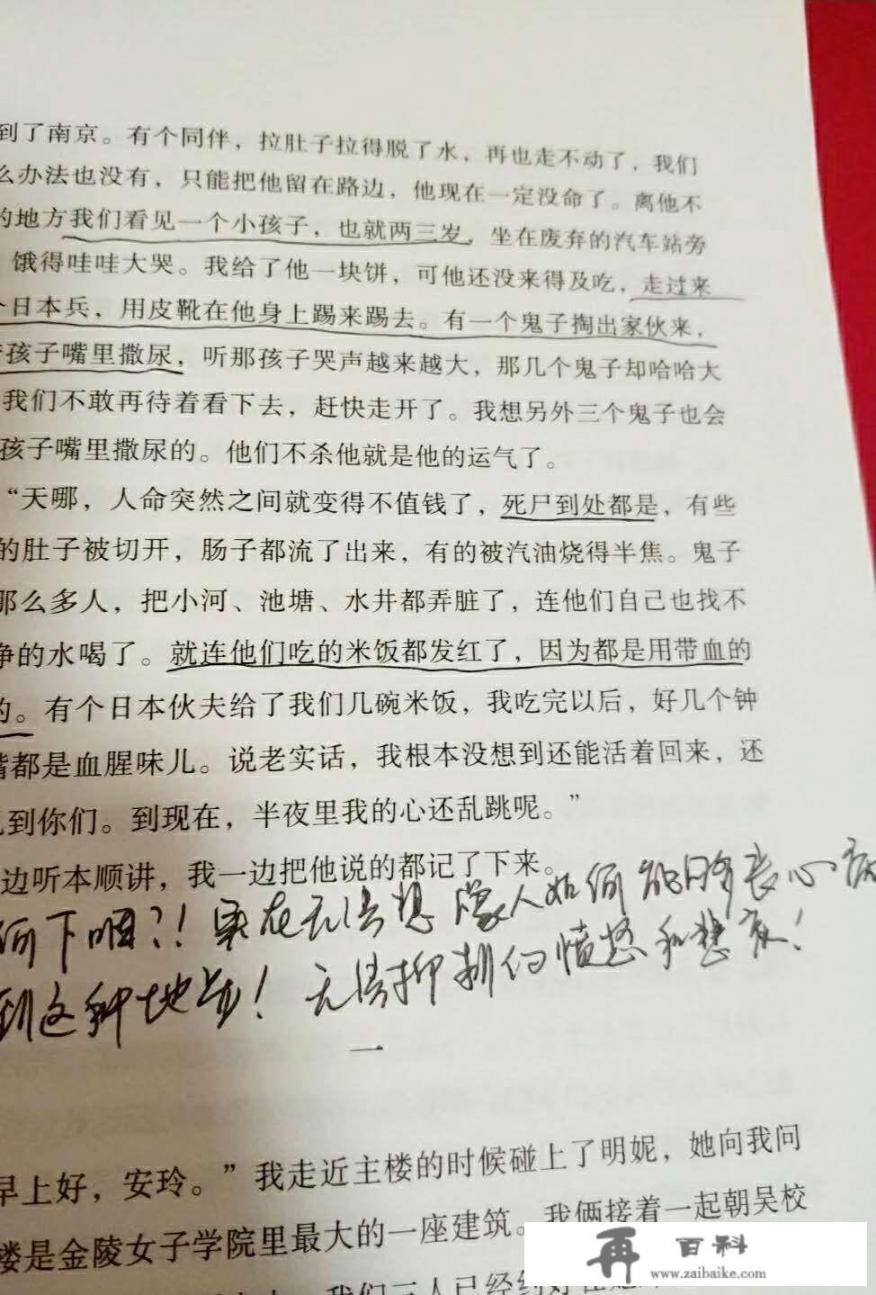 到了南京。有个同伴，拉肚子拉得脱了水，再也走不动了，我们
么办法也没有，只能把他留在路边，他现在一定没命了。离他不
的地方我们看见一个小孩子，也就两三岁，坐在废弃的汽车站旁
，饿得哇哇大哭。我给了他一块饼，可他还没来得及吃，走过来
个日本兵，用皮靴在他身上踢来踢去。有一个鬼子掏出家伙来，
孩子嘴里撒尿，听那孩子哭声越来越大，那几个鬼子却哈哈大
我们不敢再待着看下去，赶快走开了。我想另外三个鬼子也会
孩子嘴里撒尿的。他们不杀他就是他的运气了。
“天哪，人命突然之间就变得不值钱了，死尸到处都是，有些
的肚子被切开，肠子都流了出来，有的被汽油烧得半焦。鬼子
那么多人，把小河、池塘、水井都弄脏了，连他们自己也找不
净的水喝了。就连他们吃的米饭都发红了，因为都是用带血的
的。有个日本伙夫给了我们几碗米饭，我吃完以后，好几个钟
嘴都是血腥味儿。说老实话，我根本没想到还能活着回来，还
见到你们。到现在，半夜里我的心还乱跳呢。”
边听本顺讲，我一边把他说的都记了下来。
何下咽？！实在无法想像人如何能丧心病
到这种地步！无法抑制的愤怒和悲哀！
一
早上好，安玲。”我走近主楼的时候碰上了明妮，她向我问
楼是金陵女子学院里最大的一座建筑。我俩接着一起朝吴校
我们三人已经约好在
再 百科
www.zaibaike.com